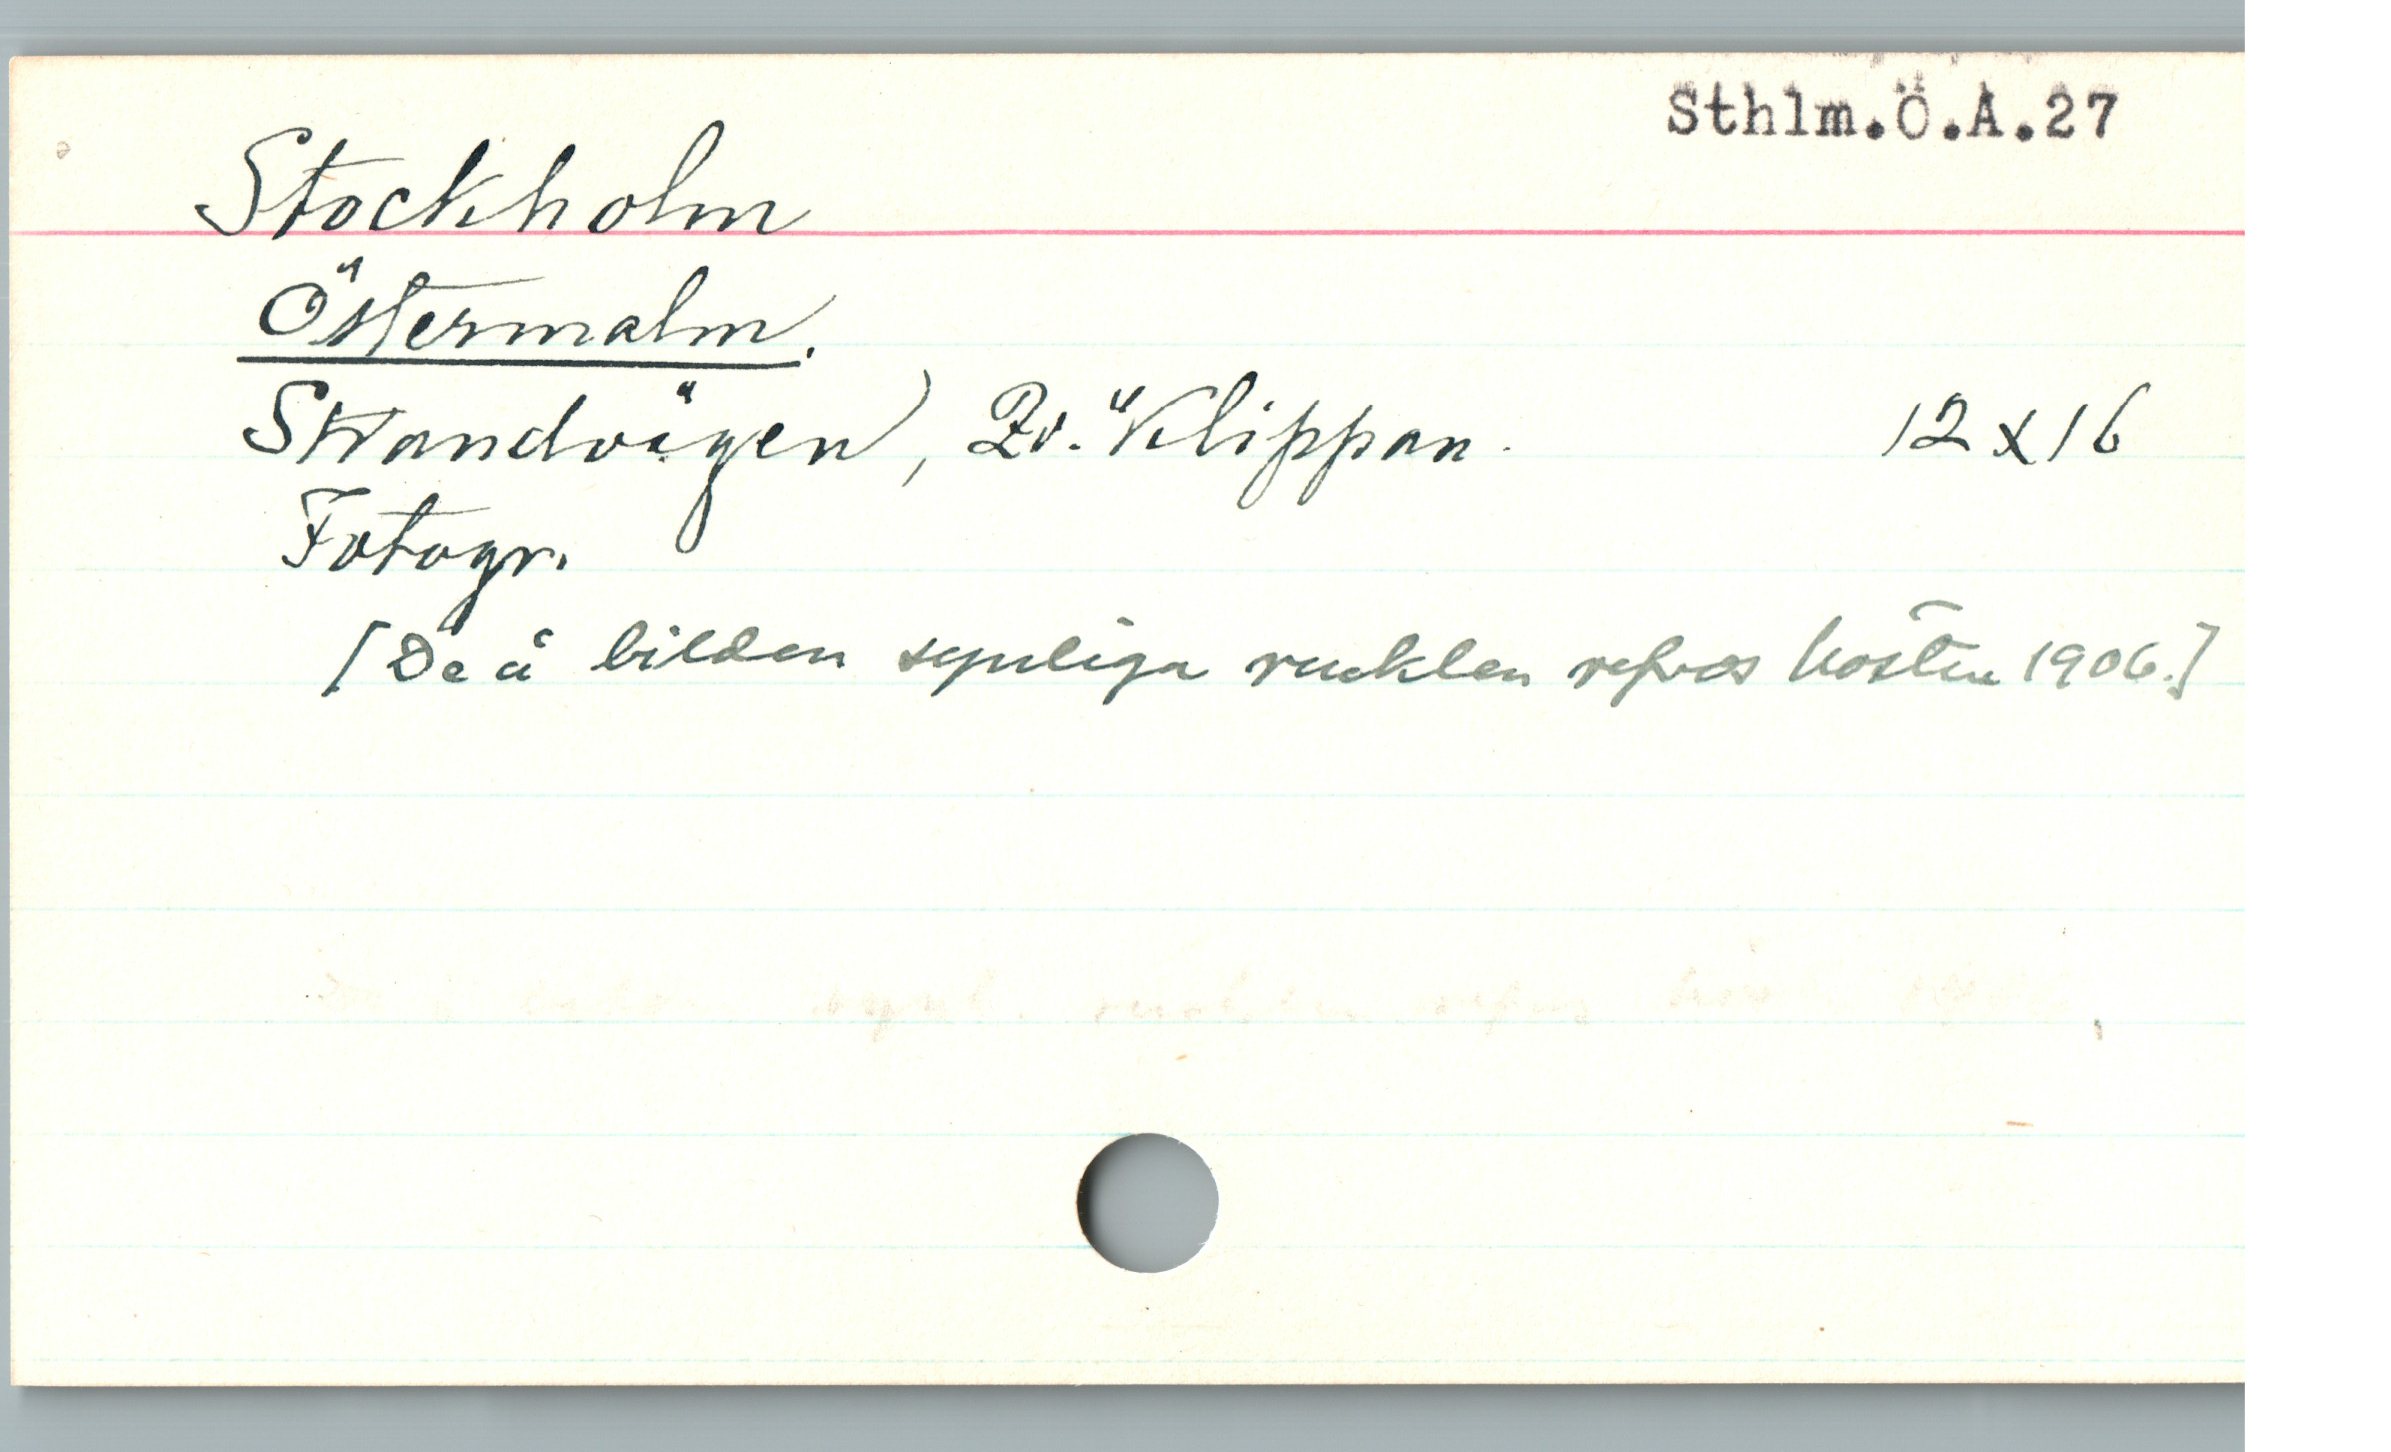 Sthlm.Ö.A.27
Stockholm
Östermalm.
Strandvägen, Kv. Klippan. 12 x 16
Fotogr.
[De å bilden synliga rucklen refvos hösten 1906.]